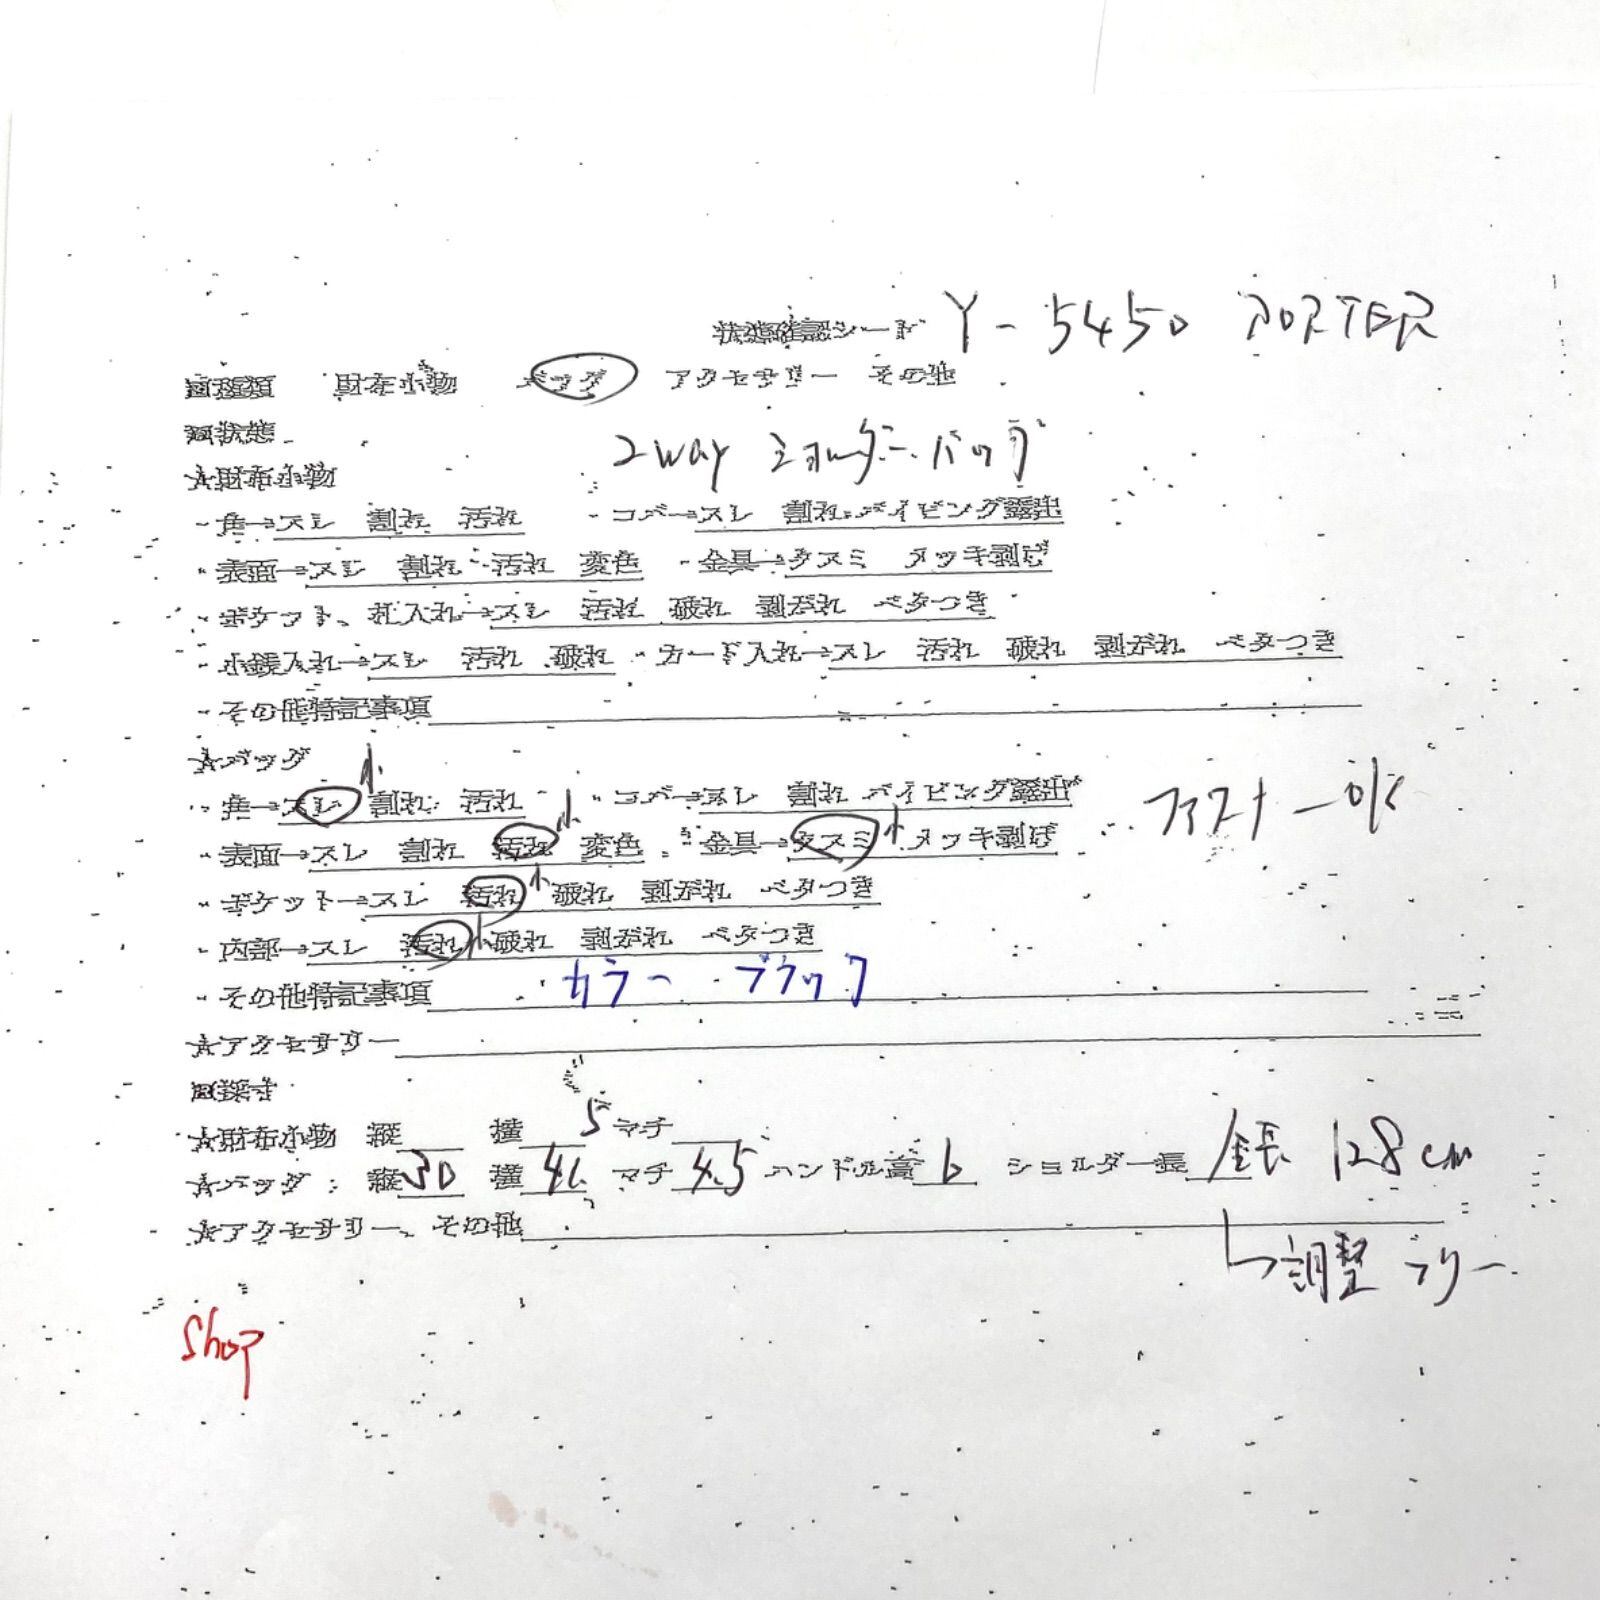 状態確認シート Y-5450 PORTER
■種類 財布小物 バッグ アクセサリー その他
■状態
2way ショルダーバッグ
★財布小物
・角→スレ 割れ 汚れ ・コバ→スレ 割れ パイピング露出
・表面→スレ 割れ 汚れ 変色 ・金具→クスミ メッキ剥げ
・ポケット、札入れ→スレ 汚れ 破れ 剥がれ ベタつき
・小銭入れ→スレ 汚れ 破れ ・カード入れ→スレ 汚れ 破れ 剥がれ ベタつき
・その他特記事項
★バッグ
・角→スレ 小 割れ 汚れ ・コバ→スレ 割れ パイピング露出 ファスナーOK
・表面→スレ 割れ 汚れ 小 変色 ・金具→クスミ 小 メッキ剥げ
・ポケット→スレ 汚れ 小 破れ 剥がれ ベタつき
・内部→スレ 汚れ 小 破れ 剥がれ ベタつき
・その他特記事項 カラー ブラック
★アクセサリー
■採寸
★財布小物 縦 横 マチ
★バッグ:縦30 横 マチ4.5 ハンドル高6 ショルダー長 全長 128cm
★アクセサリー、その他
↳調整フリー
Shop